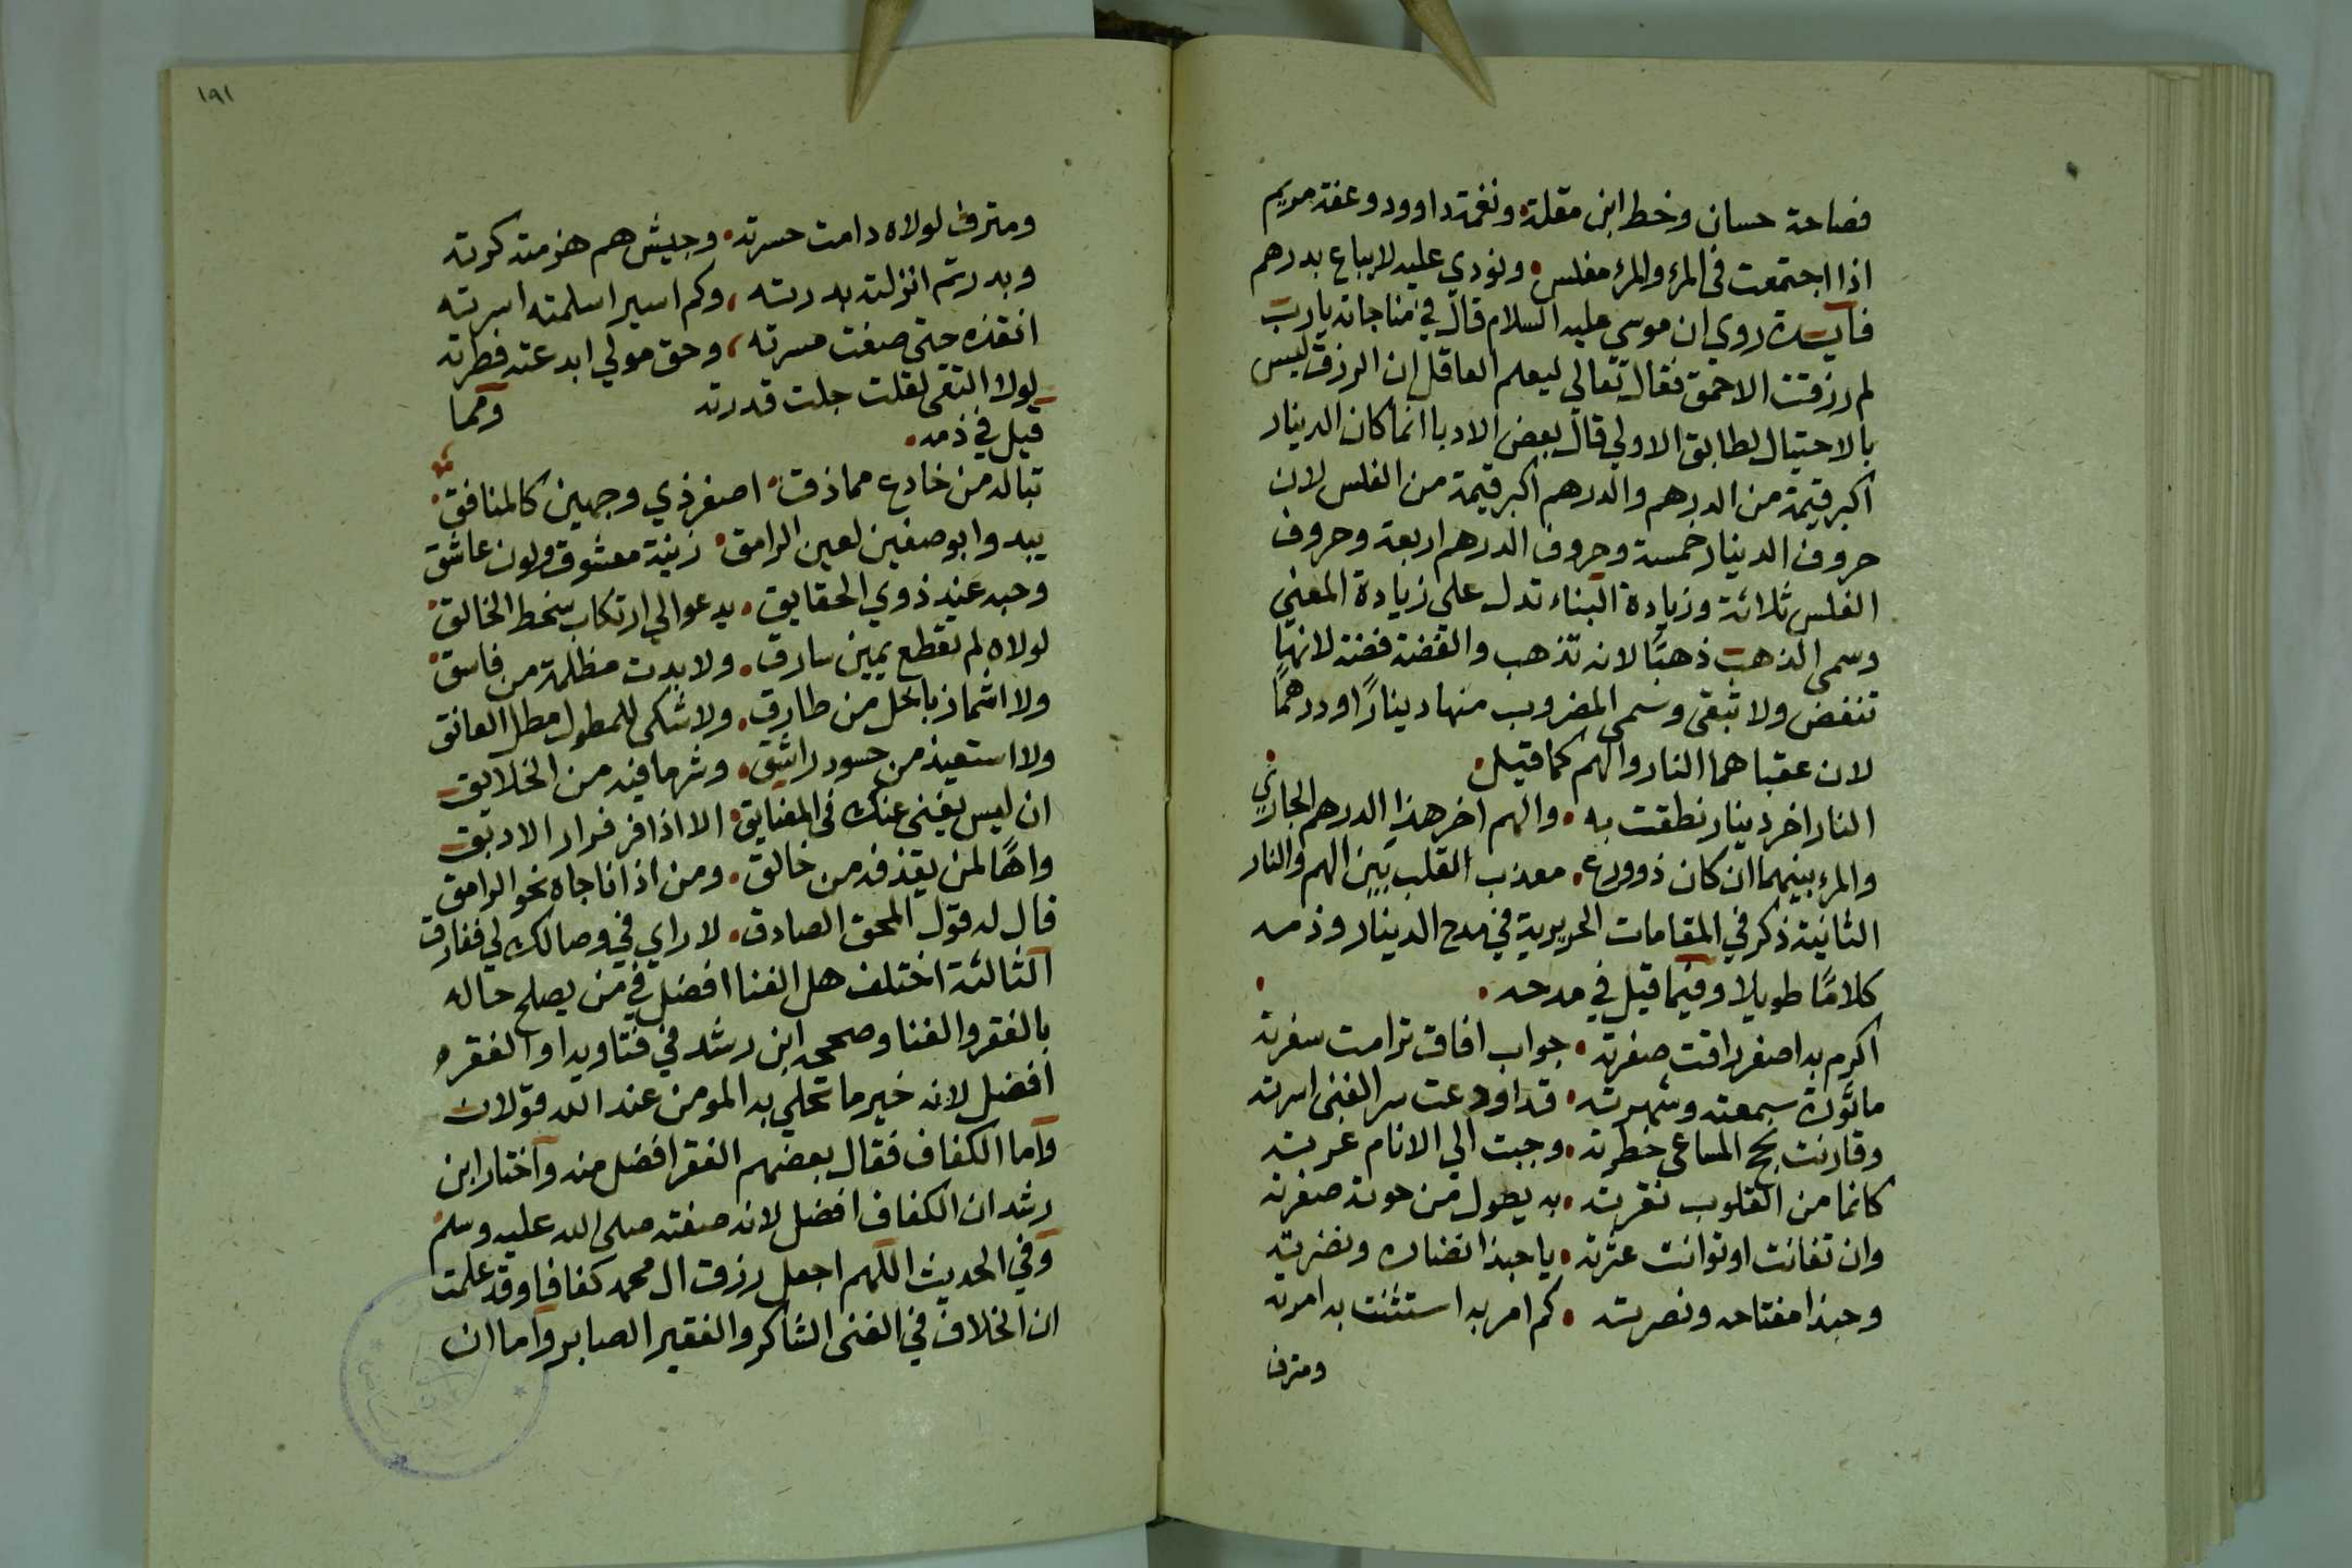 فصاحة حسان وخط ابن مقلة ونغمة داوود وعفة مريم
اذا اجتمعت في المرء والمرء مفلس ونودي عليه لا يباع بدرهم
فايدة روي ان موسى عليه السلام قال في مناجاته يا رب
لم رزقت الاحمق فقال تعالى ليعلم العاقل ان الرزق ليس
بالاحتيال لطابق الاولي قال بعض الادبا انما كان الدينار
اكبر قيمة من الدرهم والدرهم اكبر قيمة من الفلس لان
حروف الدينار خمسة وحروف الدرهم اربعة وحروف
الفلس ثلاثة وزيادة البناء تدل على زيادة المعنى
وسمى الذهب ذهبًا لانه تذهب والفضة فضة لانها
تنفض ولا تبقى وسمى المضروب منها دينارًا ودرهمًا
لان عقباهما النار والهم كما قيل
النار اخر دينار نطقت به والهم اخر هذا الدرهم الجاري
والمرء بينهما ان كان ذو ورع معذب القلب بين الهم والنار
الثانية ذكر في المقامات الحريرية في مدح الدينار وذمه
كلامًا طويلا وفيما قيل في مدحه
اكرم به اصفر راقت صفرته جواب افاق ترامت سفرته
ماثورة سمعته وشهرته قد اودعت سر الغنى اسرته
وقارنت نجح المساعي خطرته وجبت الي الانام غربته
كانما من القلوب نقرته به يطول من حوته صفرته
وان تفانت او توانت عثرته يا حبذا نضاره ونضرته
وحبذا مفتاحه ونصرته كم امر به استثنت به امرته
ومترف
١٩١
ومترف لولاه دامت حسرته وجيش هم هزمته كرته
وبدر تم انزلته بدرته وكم اسير اسلمته اسرته
انقذه حتى صفت مسرته وحق مولي ابدعته فطرته
لولا التقى لقلت جلت قدرته ومما
قيل في ذمه
تبا له من خادع مماذق اصفر ذي وجهين كالمنافق
يبدوا بوصفين لعين الرامق زينة معشوق ولون عاشق
وحبه عند ذوي الحقايق يدعو الي ارتكاب سخط الخالق
لولاه لم تقطع يمين سارق ولا بدت مظلمة من فاسق
ولا اشماز باخل من طارق ولا شكى للمطول مطل العانق
ولا استعيذ من حسود راشق وشر ما فيه من الخلايق
ان ليس يغني عنك في المضايق الا اذا فر فرار الابق
واهًا لمن يقذفه من حالق ومن اذا ناجاه نحو الرامق
قال له قول المحق الصادق لا راي في وصالك لي ففارق
الثالثة اختلف هل الغنا افضل في من يصلح حاله
بالفقر والغنا وصححه ابن رشد في فتاويه او الفقر
افضل لانه خير ما تحلي به المومن عند الله قولان
واما الكفاف فقال بعضهم الفقر افضل منه واختار ابن
رشد ان الكفاف افضل لانه صفته صلى الله عليه وسلم
وفي الحديث اللهم اجعل رزق ال محمد كفافا وقد علمت
ان الخلاف في الغنى الشاكر والفقير الصابر واما ان